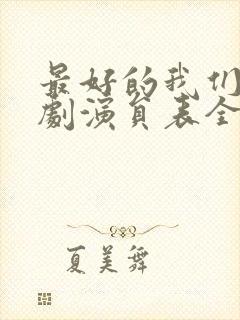 最好的我们
劇演员表全
夏美舞